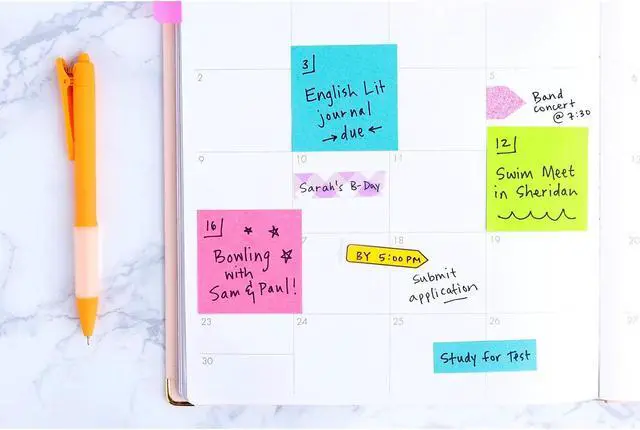 2
3
English Lit
journal
→ due ←
5
Band
concert
@ 7:30
9
10
11
Sarah's B-Day
12
Swim Meet
in Sheridan
16
Bowling
with
Sam & Paul!
17
18
BY 5:00 PM
Submit
application
19
23
24
25
26
Study for Test
30